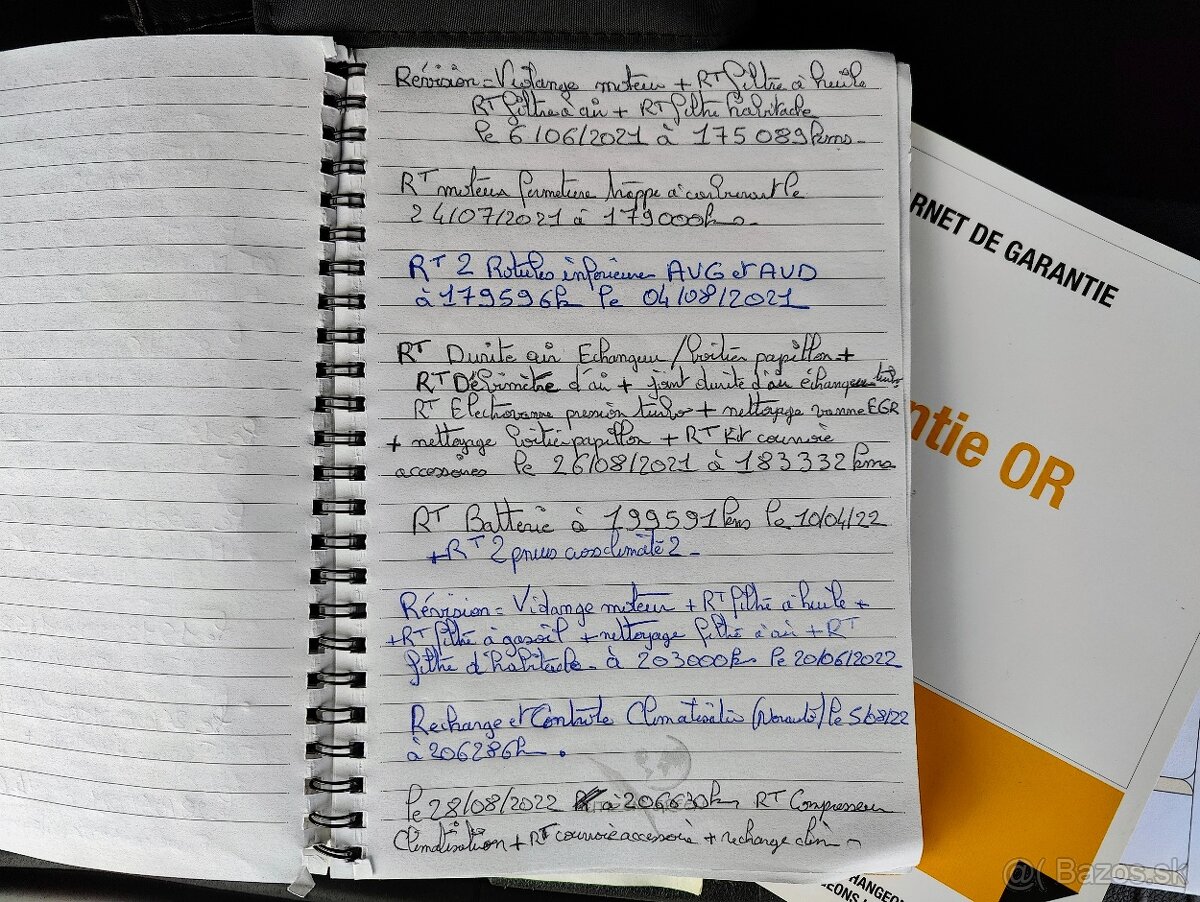 Révision = Vidange moteur + RT filtre à huile
RT filtre à air + RT filtre habitacle
le 6/06/2021 à 175 089 kms.
RT moteur fermeture trappe à carburant le
24/07/2021 à 179000k
RT 2 Rotules inférieures AVG et AVD
à 179596k le 04/08/2021
RT Durite air Echangeur/boîtier papillon +
RT Débimètre d'air + joint durite d'air échangeur turbo
RT Electrovanne pression turbo + nettoyage vanne EGR
+ nettoyage boîtier papillon + RT Kit courroie
accessoires le 26/08/2021 à 183332 kms
RT Batterie à 199591 kms le 10/04/22
+ RT 2 pneus crossclimate 2 -
Révision = Vidange moteur + RT filtre à huile +
+ RT filtre à gasoil + nettoyage filtre à air + RT
filtre d'habitacle - à 203000k le 20/06/2022
Recharge et Contrôle Climatisation (Norauto) le 5/08/22
à 206286k .
le 28/08/2022 à 206630k RT Compresseur
Climatisation + RT courroie accessoire + recharge clim
ARNET DE GARANTIE
ntie OR
HANGEON
GEONS
@( Bazos.sk